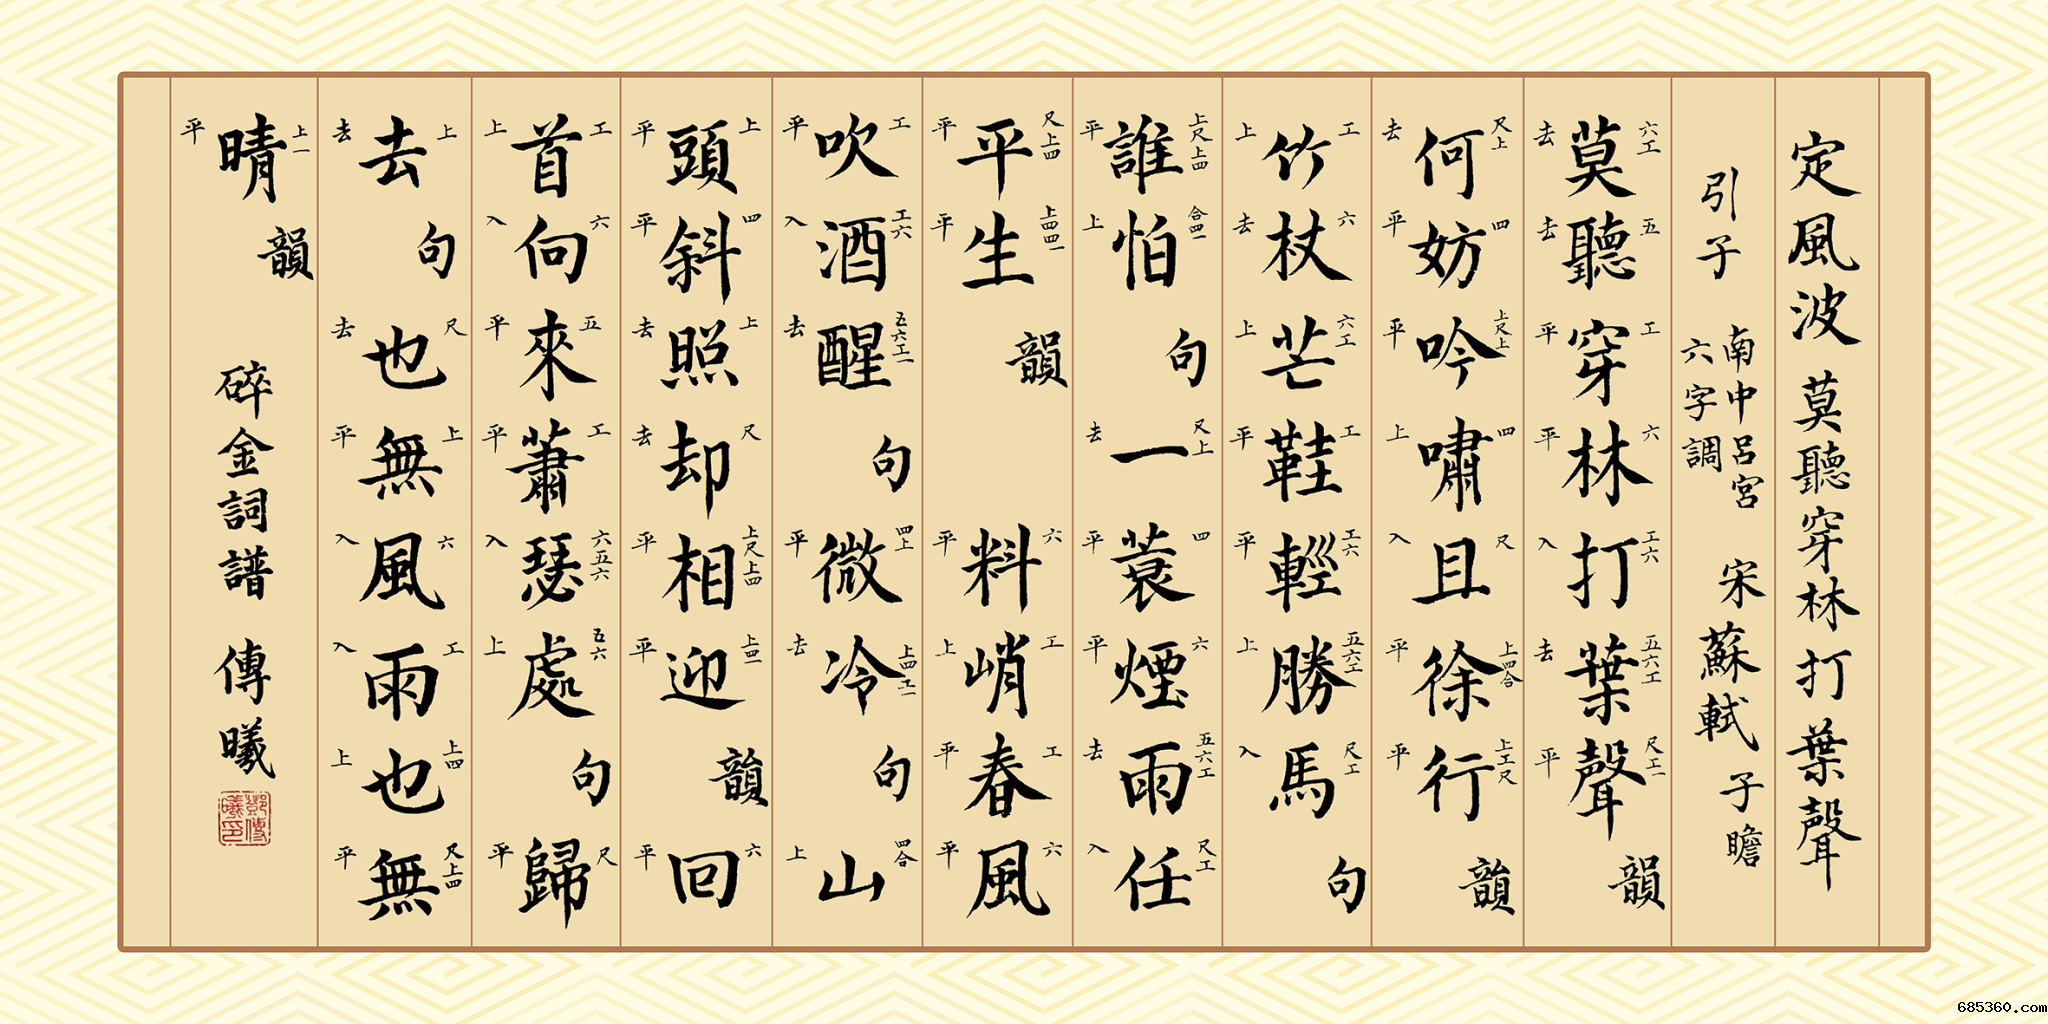 定風波 莫聽穿林打葉聲
引子 南中呂宮 六字調 宋 蘇軾 子瞻
六工 五 工 六 工六 五六工 尺工一
莫聽穿林打葉聲韻
去 去 平 平 入 去 平
尺上 四 上尺上 四 尺 上四合 上工尺
何妨吟嘯且徐行韻
去 平 平 上 入 平 平
工 六 六工 工 工六 五六工 尺工
竹杖芒鞋輕勝馬句
上 去 上 平 平 上 入
上尺上四 合四一 尺上 四 六 五六工 尺工
誰怕句一蓑煙雨任
平 上 去 平 平 去 入
尺上四 上四四一 六 工 工 六
平生韻 料峭春風
平 平 平 上 平 平
工 工六 五六工一 四上 上四工一 四合
吹酒醒句微冷句山
平 入 去 平 去 上
上 四 上 尺 上尺上四 上四一 六
頭斜照却相迎韻回
平 平 去 去 平 平 平
工 六 五 工 六五六 五六 尺
首向來蕭瑟處句歸
上 入 平 平 入 上 平
上 尺 上 六 工 上四 尺上四
去句也無風雨也無
去 去 平 入 入 上 平
上一
晴韻 碎金詞譜 傳曦
平
鄧傳曦印
685360.com